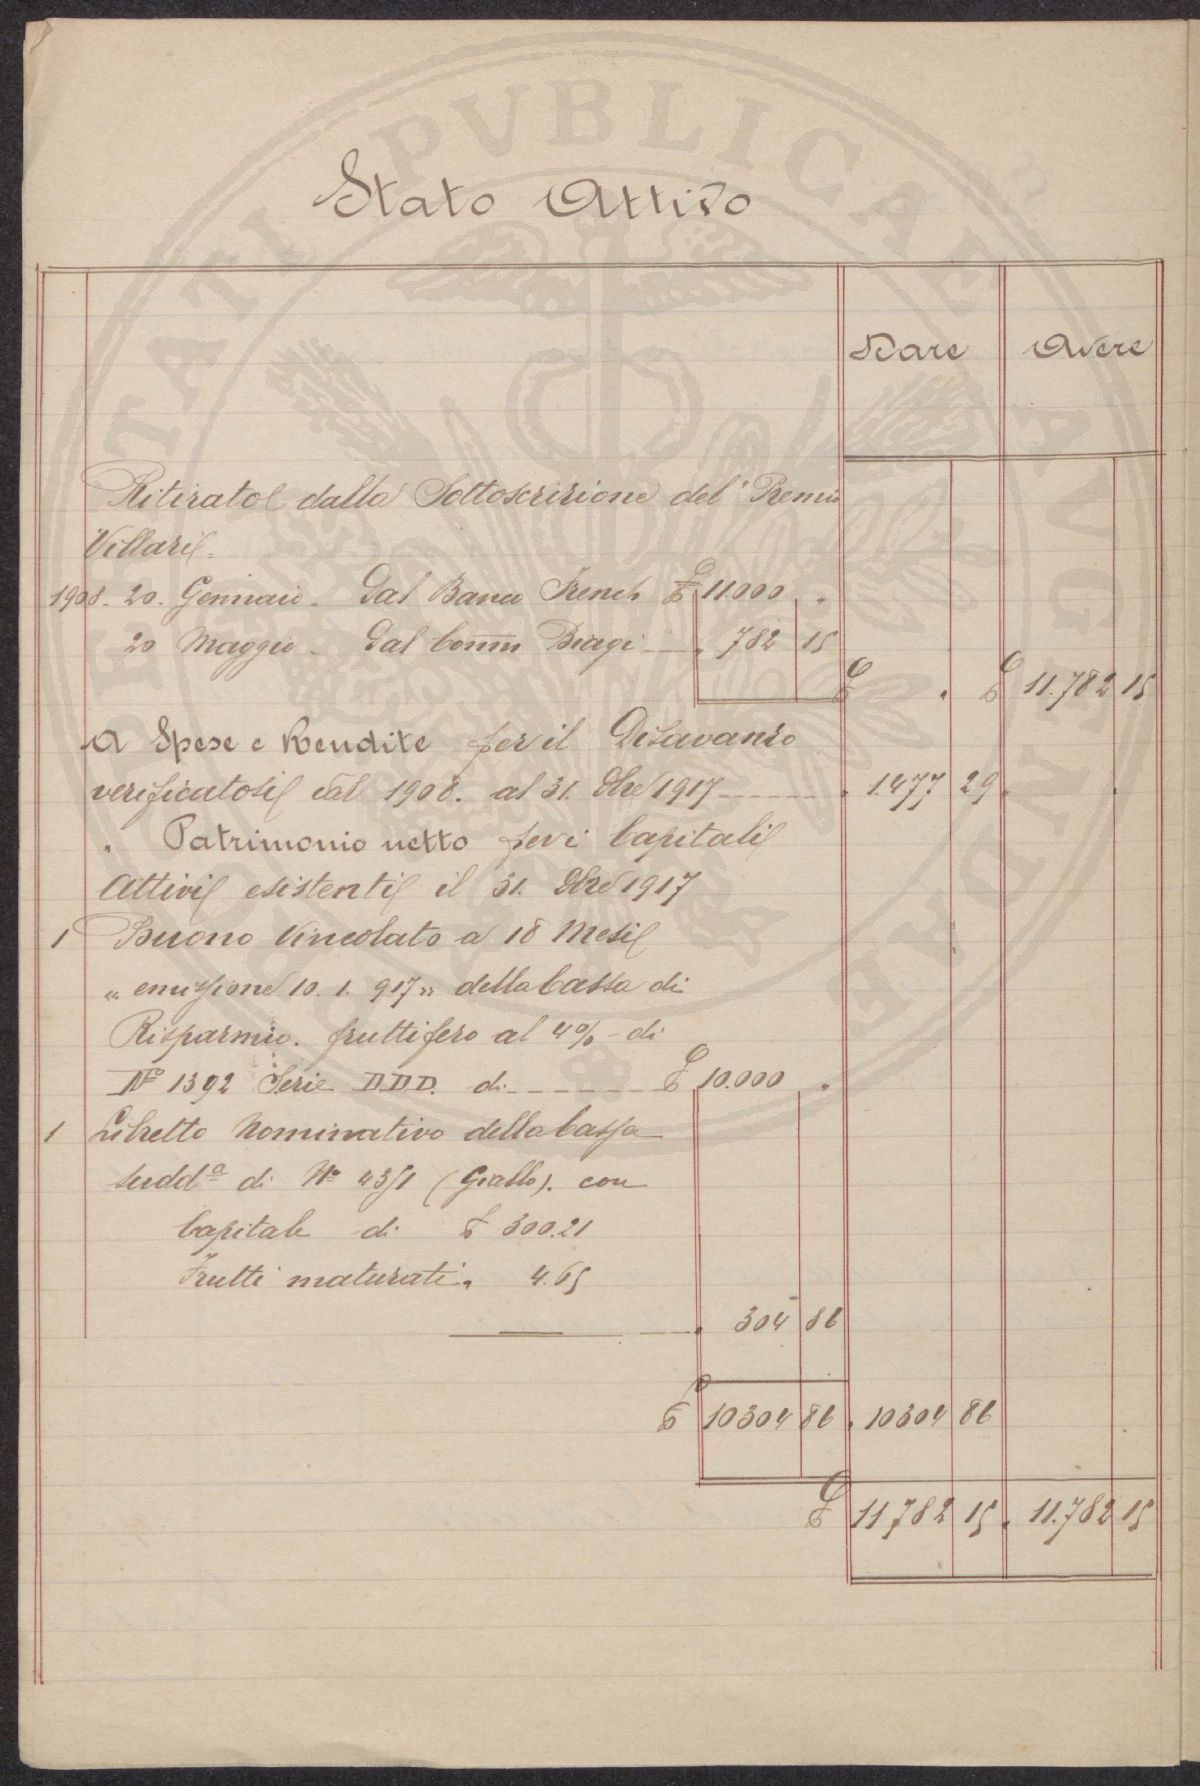 Stato Attivo
Dare Avere
Ritirato dalla Sottoscrizione del Premio
Villari
1908. 20. Gennaio. Dal Banco French £ 11.000 "
20 Maggio. Dal Comm Biagi " 782 15
£ " £ 11.782 15
A Spese e Rendite per il Disavanzo
verificatosi dal 1908. al 31. Dbre 1917 " 1477 29 " "
" Patrimonio netto per i Capitali
Attivi esistenti il 31. Dbre 1917
1 Buono Vincolato a 18 Mesi
" emissione 10. 1. 917 " della Cassa di
Risparmio. fruttifero al 4% di
N° 1392 Serie D.D.D. di £ 10.000 "
1 Libretto Nominativo della Cassa
sudd.a di N° 4351 (Giallo). con
Capitale di £ 300.21
Frutti maturati " 4.65
" 304 86
£ 10304 86 " 10304 86
£ 11782 15 " 11.782 15
PVBLICAE